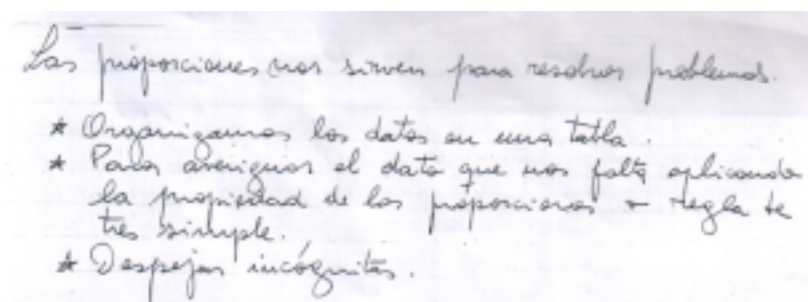 Las proporciones nos sirven para resolver problemas.
* Organizamos los datos en una tabla.
* Para averiguar el dato que nos falta aplicando
la propiedad de las proporciones o regla de
tres simple.
* Despejar incógnitas.